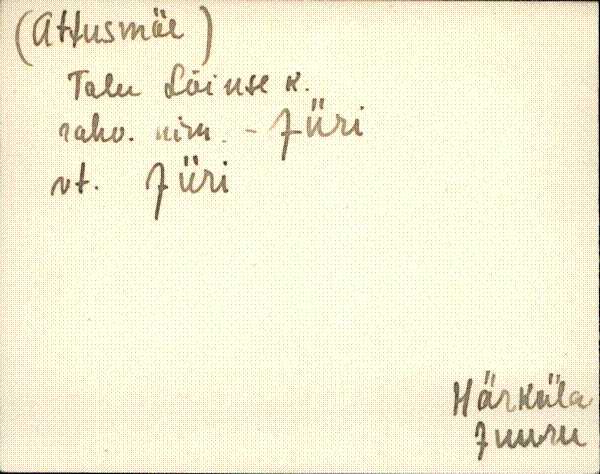 (Attusmäe)
Talu Lõiuse k.
rahv. nim. - Jüri
vt. Jüri
Härküla
Juuru